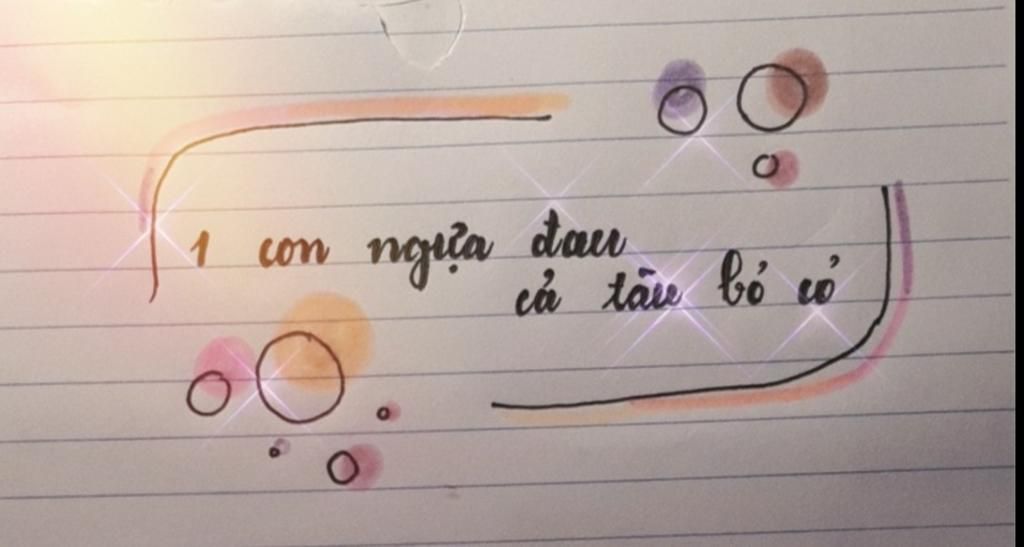 1 con ngựa đau
cả tàu bỏ cỏ